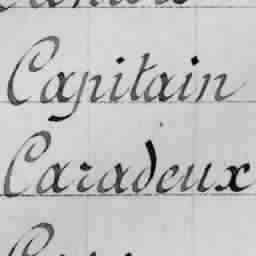 Capitain
Caradeux